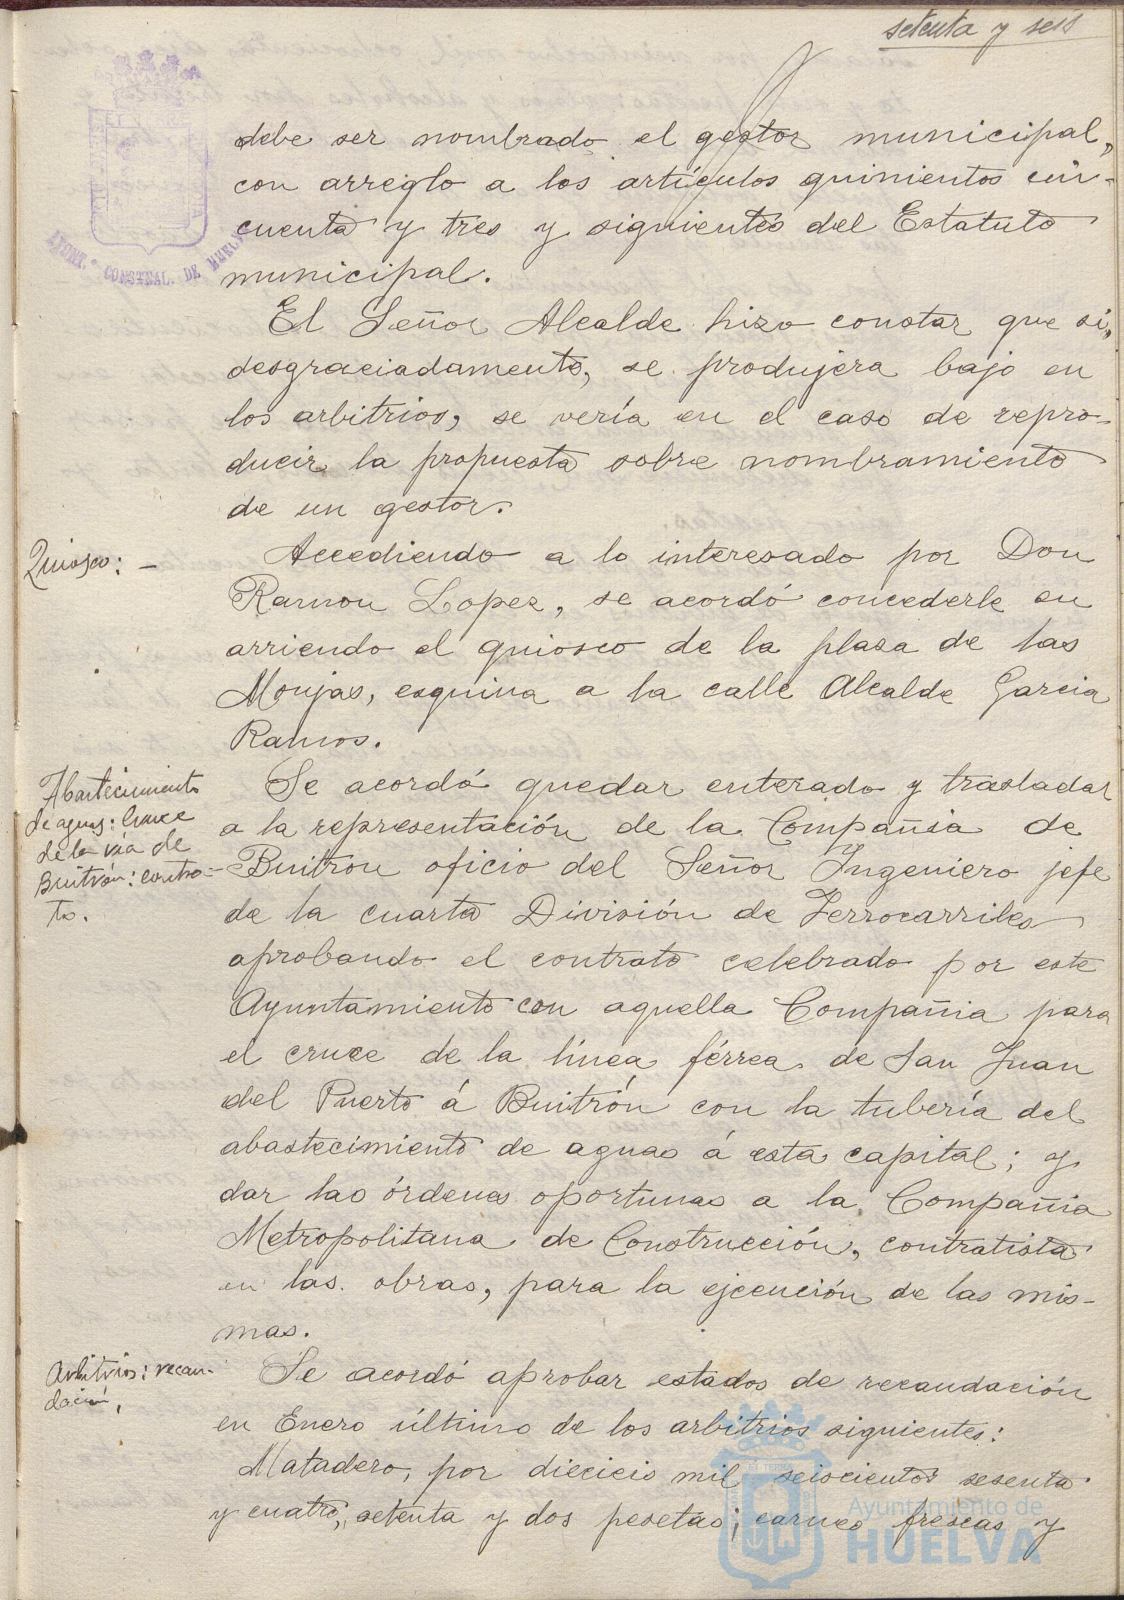 setenta y seis
debe ser nombrado el gestor municipal,
con arreglo a los artículos quinientos cin-
cuenta y tres y siguientes del Estatuto
municipal.
AYUNT.º CONSTNAL. DE HUELVA
El Señor Alcalde hizo constar que si,
desgraciadamente, se produjera bajo en
los arbitrios, se vería en el caso de repro-
ducir la propuesta sobre nombramiento
de un gestor.
Quiosco: -
Accediendo a lo interesado por Don
Ramon Lopez, se acordó concederle en
arriendo el quiosco de la plaza de las
Monjas, esquina a la calle Alcalde Garcia
Ramos.
Abastecimiento
de aguas: Cruce
de la vía de
Buitrón: contra-
to.
Se acordó quedar enterado y trasladar
a la representación de la Compañia de
Buitron oficio del Señor Ingeniero jefe
de la cuarta División de Ferrocarriles
aprobando el contrato celebrado por este
Ayuntamiento con aquella Compañia para
el cruce de la línea férrea de San Juan
del Puerto á Buitrón con la tubería del
abastecimiento de aguas á esta capital; y
dar las órdenes oportunas a la Compañia
Metropolitana de Construcción, contratista
en las obras, para la ejecución de las mis-
mas.
Arbitrios: recau-
dación,
Se acordó aprobar estados de recaudación
en Enero último de los arbitrios siguientes:
Matadero, por diecicis mil seiscientos sesenta
y cuatro, setenta y dos pesetas; carnes frescas y
Ayuntamiento de
HUELVA